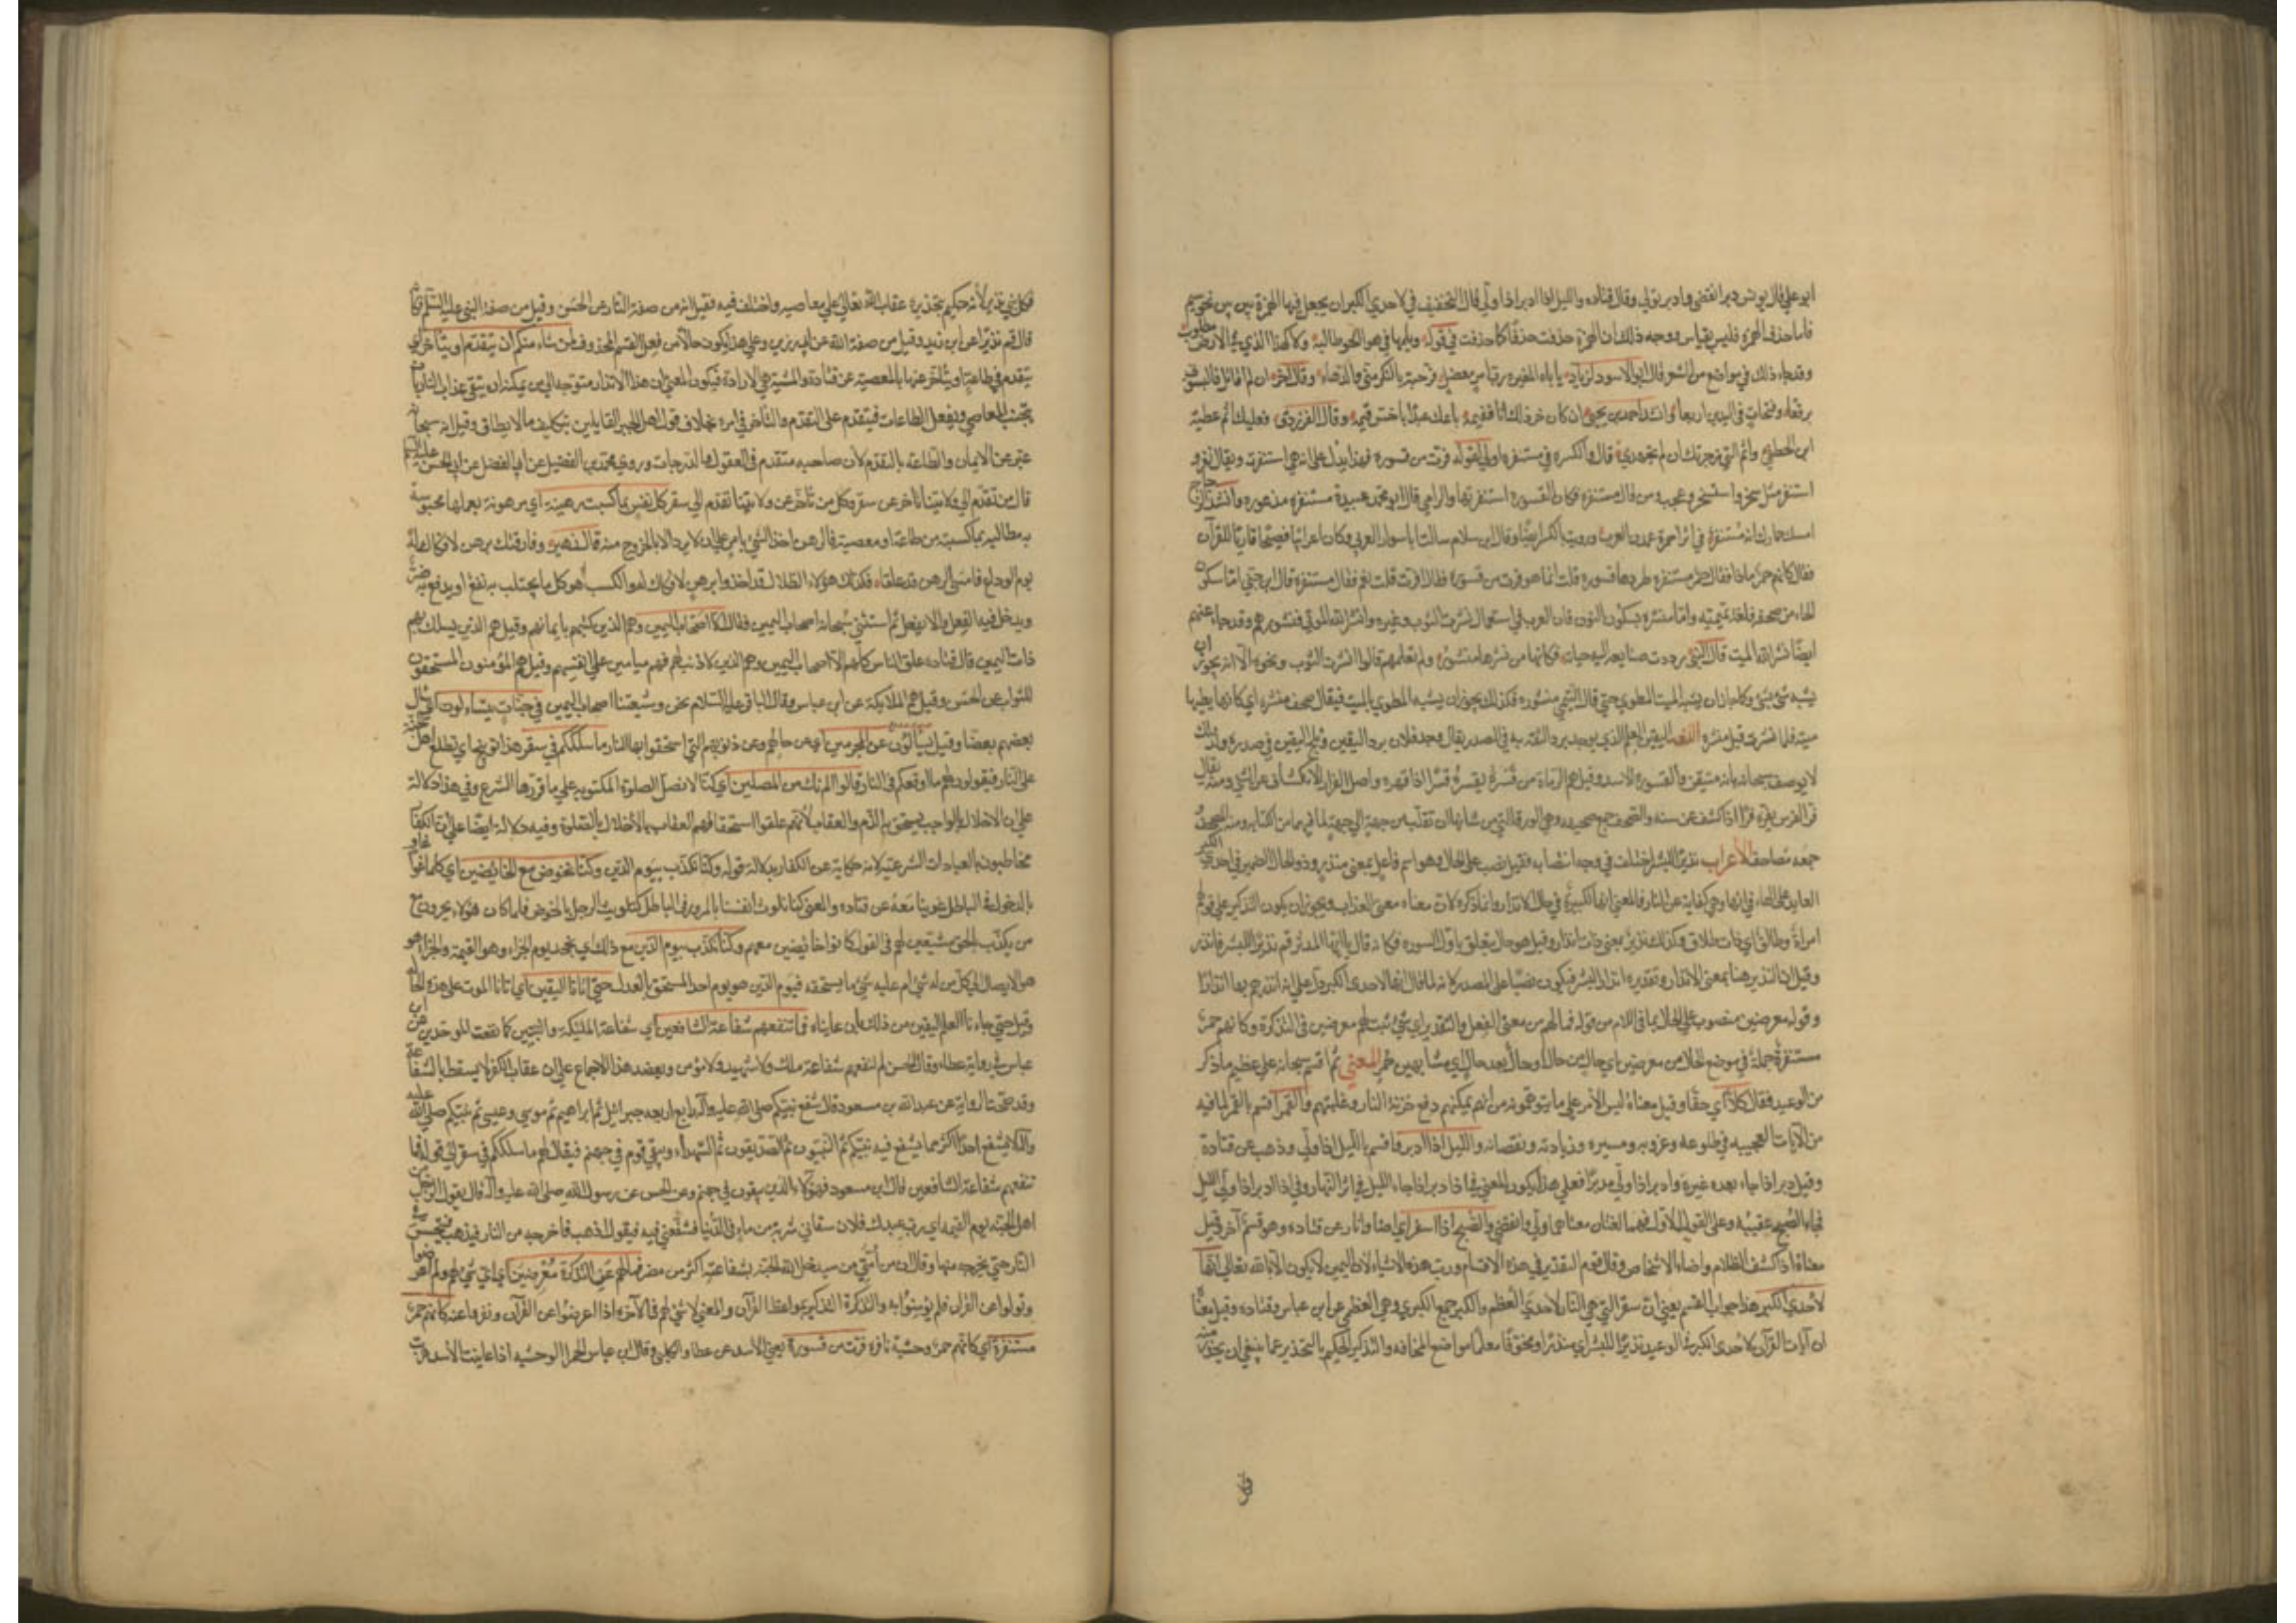 ابو علي قال يونس دبر انقضى وادبر تولى وقال قتاده والليل اذا ادبر اذا ولى قال التخفيف في لاحدى الكبر ان يجعل فيها الهمزة بين بين نحو سيم
فاما حذف الهمزة فليس بقياس ووجه ذلك ان الهمزة حذفت حذفا كما حذفت في قوله ويلمها في هواء الجو طالبة ولا كهذا الذي في الارض مطلوب
وقد جاء ذلك في مواضع من الشعر قال ابو الاسود لزياد يا با المغيرة رب امر معضل فرجته بالنكر مني والدهاء وقال آخر ان لم اقاتل فالبسوني
برقعا وفتخات في اليدين اربعا وانشد احمد بن يحيى ان كان حزن لك بافقيمه باعك عبدا باخس قيمه وقال الفرزدق فعليك اثم عطية
ابن الخطفى واثم التي زجرتك ان لم تجهدي قال والكسر في مستنفرة اولى لقوله فرت من قسورة فهذا يدل على انها هي استنفرت ويقال نفر و
استنفر مثل سخر واستسخر وعجب ومن قال مستنفرة فكان القسورة استنفرتها والرامي قال ابو عبيدة مستنفرة مذعورة وانشد الزجاج
امسك حمارك انه مستنفر في اثر احمرة عمدن لغرب ورويت بالكسر ايضا وقال ابن سلام سالت ابا سوار العربي وكان اعرابيا فصيحا قاريا للقرآن
فقال كانهم حمر ماذا فقال حمر مستنفرة طردها قسورة قلت انما هو فرت من قسورة فقال افرت قلت نعم فقال مستنفرة قال ابن جني اما سكون
الحاء من صحف فلغة تميمية واما منشرة بسكون النون فان العرب في استعمال نشرت الثوب وغيره وانشر الله الموتى فنشروا هم وقد جاء عنهم
ايضا نشر الله الميت قال التيمي ردت صنايعه اليه حياته فكانه من نشرها منشور ولم نعلمهم قالوا انشرت الثوب ونحوه الا انه يجوز ان
يشبه شيء بشيء وكما جاز ان يشبه الميت بالمطوي حتى قال التيمي منشور فكذلك يجوز ان يشبه المطوي بالميت فيقال صحف منشرة اي كانها بطيها
ميتة فلما نشرت قيل منشرة اللغة اليقين العلم الذي يوجد برد الثقة به في الصدر يقال وجد فلان برد اليقين وثلج اليقين في صدره ولذلك
لا يوصف سبحانه بانه متيقن والقسورة الاسد وقيل هم الرماة من قسره يقسره قسرا اذا قهره واصل الفرار الانكشاف عن الشيء ومنه يقال
فر الفرس يفره فرا اذا كشف عن سنه والصحف جمع صحيفة وهي الورقة التي من شانها ان تقلب من جهة الى جهة لما فيها من الكتابة ومنه المصحف
جمعه مصاحف الاعراب نذيرا للبشر اختلف في وجه انتصابه فقيل نصب على الحال وهو اسم فاعل بمعنى منذر وذو الحال الضمير في احدى الكبر
العايد على الهاء في انها وهي كناية عن النار فالمعنى انها لكبيرة في حال الانذار وانما ذكره لان معناه معنى العذاب ويجوز ان يكون التذكير على قولهم
امراة طالق اي ذات طلاق وكذلك نذير بمعنى ذات انذار وقيل هو حال يتعلق باول السورة فكانه قال يا ايها المدثر قم نذيرا للبشر فانذر
وقيل ان النذير هنا بمعنى الانذار وتقديره انذارا للبشر فيكون نصبا على المصدر لانه لما قال انها لاحدى الكبر دل على انه انذرهم بها انذارا
وقوله معرضين منصوب على الحال مما في اللام من قوله فما لهم من معنى الفعل والتقدير اي شيء ثبت لهم معرضين في التذكرة وكانهم حمر
مستنفرة جملة في موضع الحال من معرضين اي حال من حال او حال بعد حال اي مشابهين حمر المعنى ثم اقسم سبحانه على عظيم ما ذكر
من الوعيد فقال كلا اي حقا وقيل معناه ليس الامر على ما يتوهمونه من انهم يمكنهم دفع خزنة النار وغلبتهم والقمر اقسم بالقمر لما فيه
من الآيات العجيبه في طلوعه وغروبه ومسيره وزيادته ونقصانه والليل اذا ادبر واقسم بالليل اذا ولى وذهب عن قتادة
وقيل دبر اذا جاء بعده غيره وادبر اذا ولى مدبرا فعلى هذا يكون المعنى في اذا دبر اذا جاء الليل في اثر النهار وفي اذا ادبر اذا ولى الليل
فجاء الصبح عقيبه وعلى القول الاول فهما لغتان معناهما ولى وانقضى والصبح اذا اسفر اي اضاء وانار عن قتاده وهو قسم آخر وقيل
معناه اذا كشف الظلام واضاء الاشخاص وقال قوم التقدير في هذه الاقسام ورب هذه الاشياء لان اليمين لا يكون الا بالله تعالى انها
لاحدى الكبر هذا جواب القسم يعني ان سقر التي هي النار لاحدى العظم والكبر جمع الكبرى وهي العظمى عن ابن عباس وقتاده وقيل معناه
ان آيات القرآن لاحدى الكبر في الوعيد نذيرا للبشر اي منذرا ومخوفا معلما مواضع المخافه والنذير الحكيم بالتحذير عما ينبغي ان يحذر منه
فكل نبي نذير لانه حكيم بتحذيره عقاب الله تعالى على معاصيه واختلف فيه فقيل انه من صفة النار عن الحسن وقيل من صفة النبي عليه السلم فكانه
قال قم نذيرا عن ابن زيد وقيل من صفة الله عن ابي رزين وعلى هذا يكون حالا من فعل القسم المحذوف لمن شاء منكم ان يتقدم او يتاخر اي
يتقدم في طاعة او يتاخر عنها بالمعصية عن قتادة والمشية هي الارادة فيكون المعنى ان هذا الانذار متوجه الى من يمكنه ان يتقي عذاب النار بان
يتجنب المعاصي ويفعل الطاعات فيقدر على التقدم والتاخر في امره بخلاف قول اهل الجبر القايلين بتكليف ما لا يطاق وقيل انه سبحانه
عبر عن الايمان والطاعة بالتقدم لان صاحبه متقدم في العقول والدرجات وروى محمد بن الفضيل عن ابي الفضل عن ابي الحسن عليه السلم
قال من تقدم الى ولايتنا تاخر عن سقر وكل من تاخر عن ولايتنا تقدم الى سقر كل نفس بما كسبت رهينة اي مرهونة بعملها محبوسة
به مطالبة بما كسبته من طاعة او معصية فالرهن اخذ الشيء بامر على ان لا يرد الا بالخروج منه قال زهير وفارقتك برهن لا فكاك له
يوم الوداع فامسى الرهن قد غلقا فكذلك هؤلاء الضلال قد اخذوا برهن لا فكاك له والكسب هو كل ما يجتلب به نفع او يدفع به ضرر
ويدخل فيه الفعل والا يفعل ثم استثنى سبحانه اصحاب اليمين فقال الا اصحاب اليمين وهم الذين كتبهم بايمانهم وقيل هم الذين يسلك بهم
ذات اليمين قال قتاده علق الناس كلهم الا اصحاب اليمين وهم الذين لا ذنب لهم فهم ميامين على انفسهم وقيل هم المؤمنون المستحقون
للثواب عن الحسن وقيل هم الملايكة عن ابن عباس وقال الباقر عليه السلام نحن وشيعتنا اصحاب اليمين في جنات يتساءلون اي يسال
بعضهم بعضا وقيل يتسالون عن المجرمين اي عن حالهم وعن ذنوبهم التي استحقوا بها النار ما سلككم في سقر هذا توبيخ اي تطلع اهل الجنة
على النار فيقولون لهم ما اوقعكم في النار قالوا لم نك من المصلين اي كنا لا نصلي الصلوة المكتوبة على ما قررها الشرع وفي هذا دلالة
على ان الاخلال بالواجب يستحق به الذم والعقاب لانهم علقوا استحقاقهم العقاب بالاخلال بالصلوة وفيه دلالة ايضا على ان الكفار
مخاطبون بالعبادات الشرعية لانه حكاية عن الكفار بدلالة قوله وكنا نكذب بيوم الدين وكنا نخوض مع الخائضين اي كلما غوى غاو
بالدخول في الباطل غوينا معه عن قتاده والمعنى كنا نلوث انفسنا بالمرور في الباطل كتلويث الرجل بالخوض فلما كان هؤلاء يجرون مع
من يكذب بالحق مشيعين لهم في القول كانوا خائضين معهم وكنا نكذب بيوم الدين مع ذلك اي نجحد يوم الجزاء وهو القيمة والجزاء هو
هو الايصال الى كل من له شيء او عليه شيء ما يستحقه فيوم الدين هو يوم اخذ المستحق بالعدل حتى اتانا اليقين اي اتانا الموت على هذه الحالة
وقيل حتى جاءنا العلم اليقين من ذلك بان عايناه فما تنفعهم شفاعة الشافعين اي شفاعة الملئكة والنبيين كما نفعت الموحدين عن ابن
عباس في رواية عطاء وقال الحسن لم تنفعهم شفاعة ملك ولا شهيد ولا مؤمن ويعضد هذا الاجماع على ان عقاب الكفر لا يسقط بالشفاعة
وقد صحت الرواية عن عبد الله بن مسعود قال يشفع نبيكم صلى الله عليه وآله رابع اربعة جبرائيل ثم ابراهيم ثم موسى وعيسى ثم نبيكم صلى الله عليه
وآله لا يشفع احد اكثر مما يشفع فيه نبيكم ثم النبيون ثم الصديقون ثم الشهداء ويبقى قوم في جهنم فيقال لهم ما سلككم في سقر الى قوله فما
تنفعهم شفاعة الشافعين قال ابن مسعود فهؤلاء الذين يبقون في جهنم وعن الحسن عن رسول الله صلى الله عليه وآله قال يقول الرجل من
اهل الجنة يوم القيمة اي رب عبدك فلان سقاني شربة من ماء في الدنيا فشفعني فيه فيقول اذهب فاخرجه من النار فيذهب فيتجسس في
النار حتى يخرجه منها وقال ان من امتي من سيدخل الله الجنة بشفاعته اكثر من مضر فما لهم عن التذكرة معرضين اي اي شيء لهم ولم اعرضوا
وتولوا عن القرآن فلم يؤمنوا به والتذكرة التذكير بمواعظ القرآن والمعنى لا شيء لهم في الآخرة اذا اعرضوا عن القرآن ونفروا عنه كانهم حمر
مستنفرة اي كانهم حمر وحشية نافرة فرت من قسورة يعني الاسد عن عطا والكلبي وقال ابن عباس الحمر الوحشيه اذا عاينت الاسد هربت